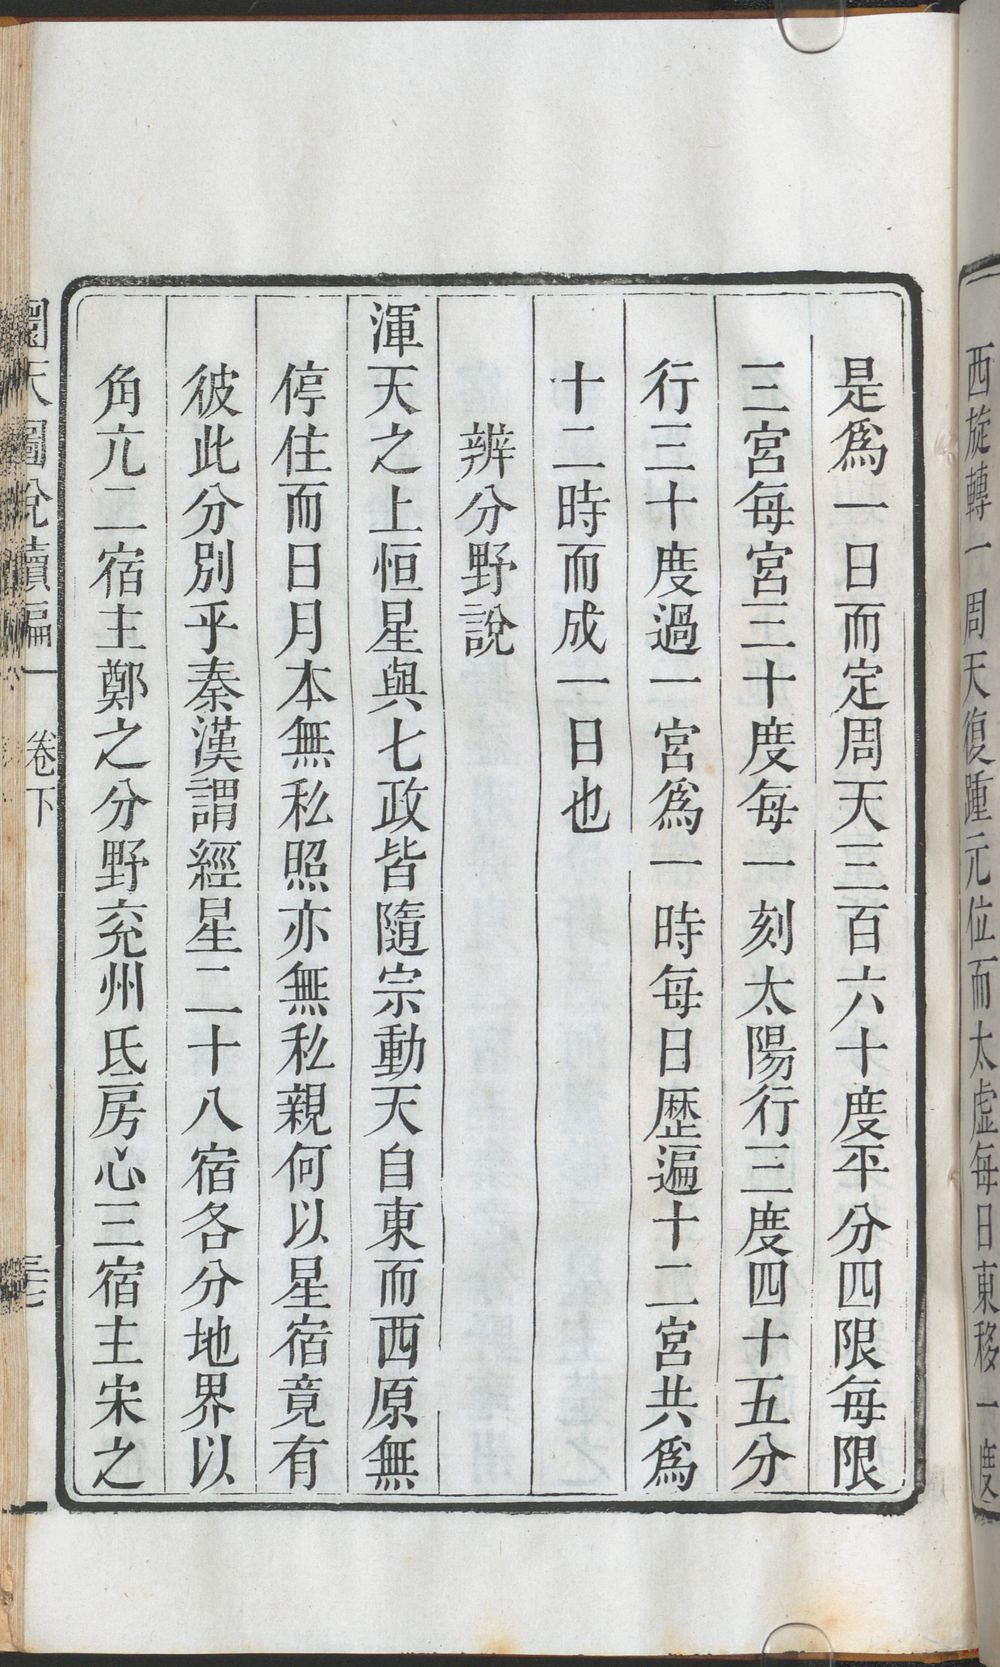 西旋轉一周天復踵元位而太虛每日東移一度
是爲一日而定周天三百六十度平分四限每限
三宮每宮三十度每一刻太陽行三度四十五分
行三十度過一宮爲一時每日歷遍十二宮共爲
十二時而成一日也
辨分野說
渾天之上恒星與七政皆隨宗動天自東而西原無
停住而日月本無私照亦無私親何以星宿竟有
彼此分別乎秦漢謂經星二十八宿各分地界以
角亢二宿主鄭之分野兖州氐房心三宿主宋之
圜天圖說續編 卷下